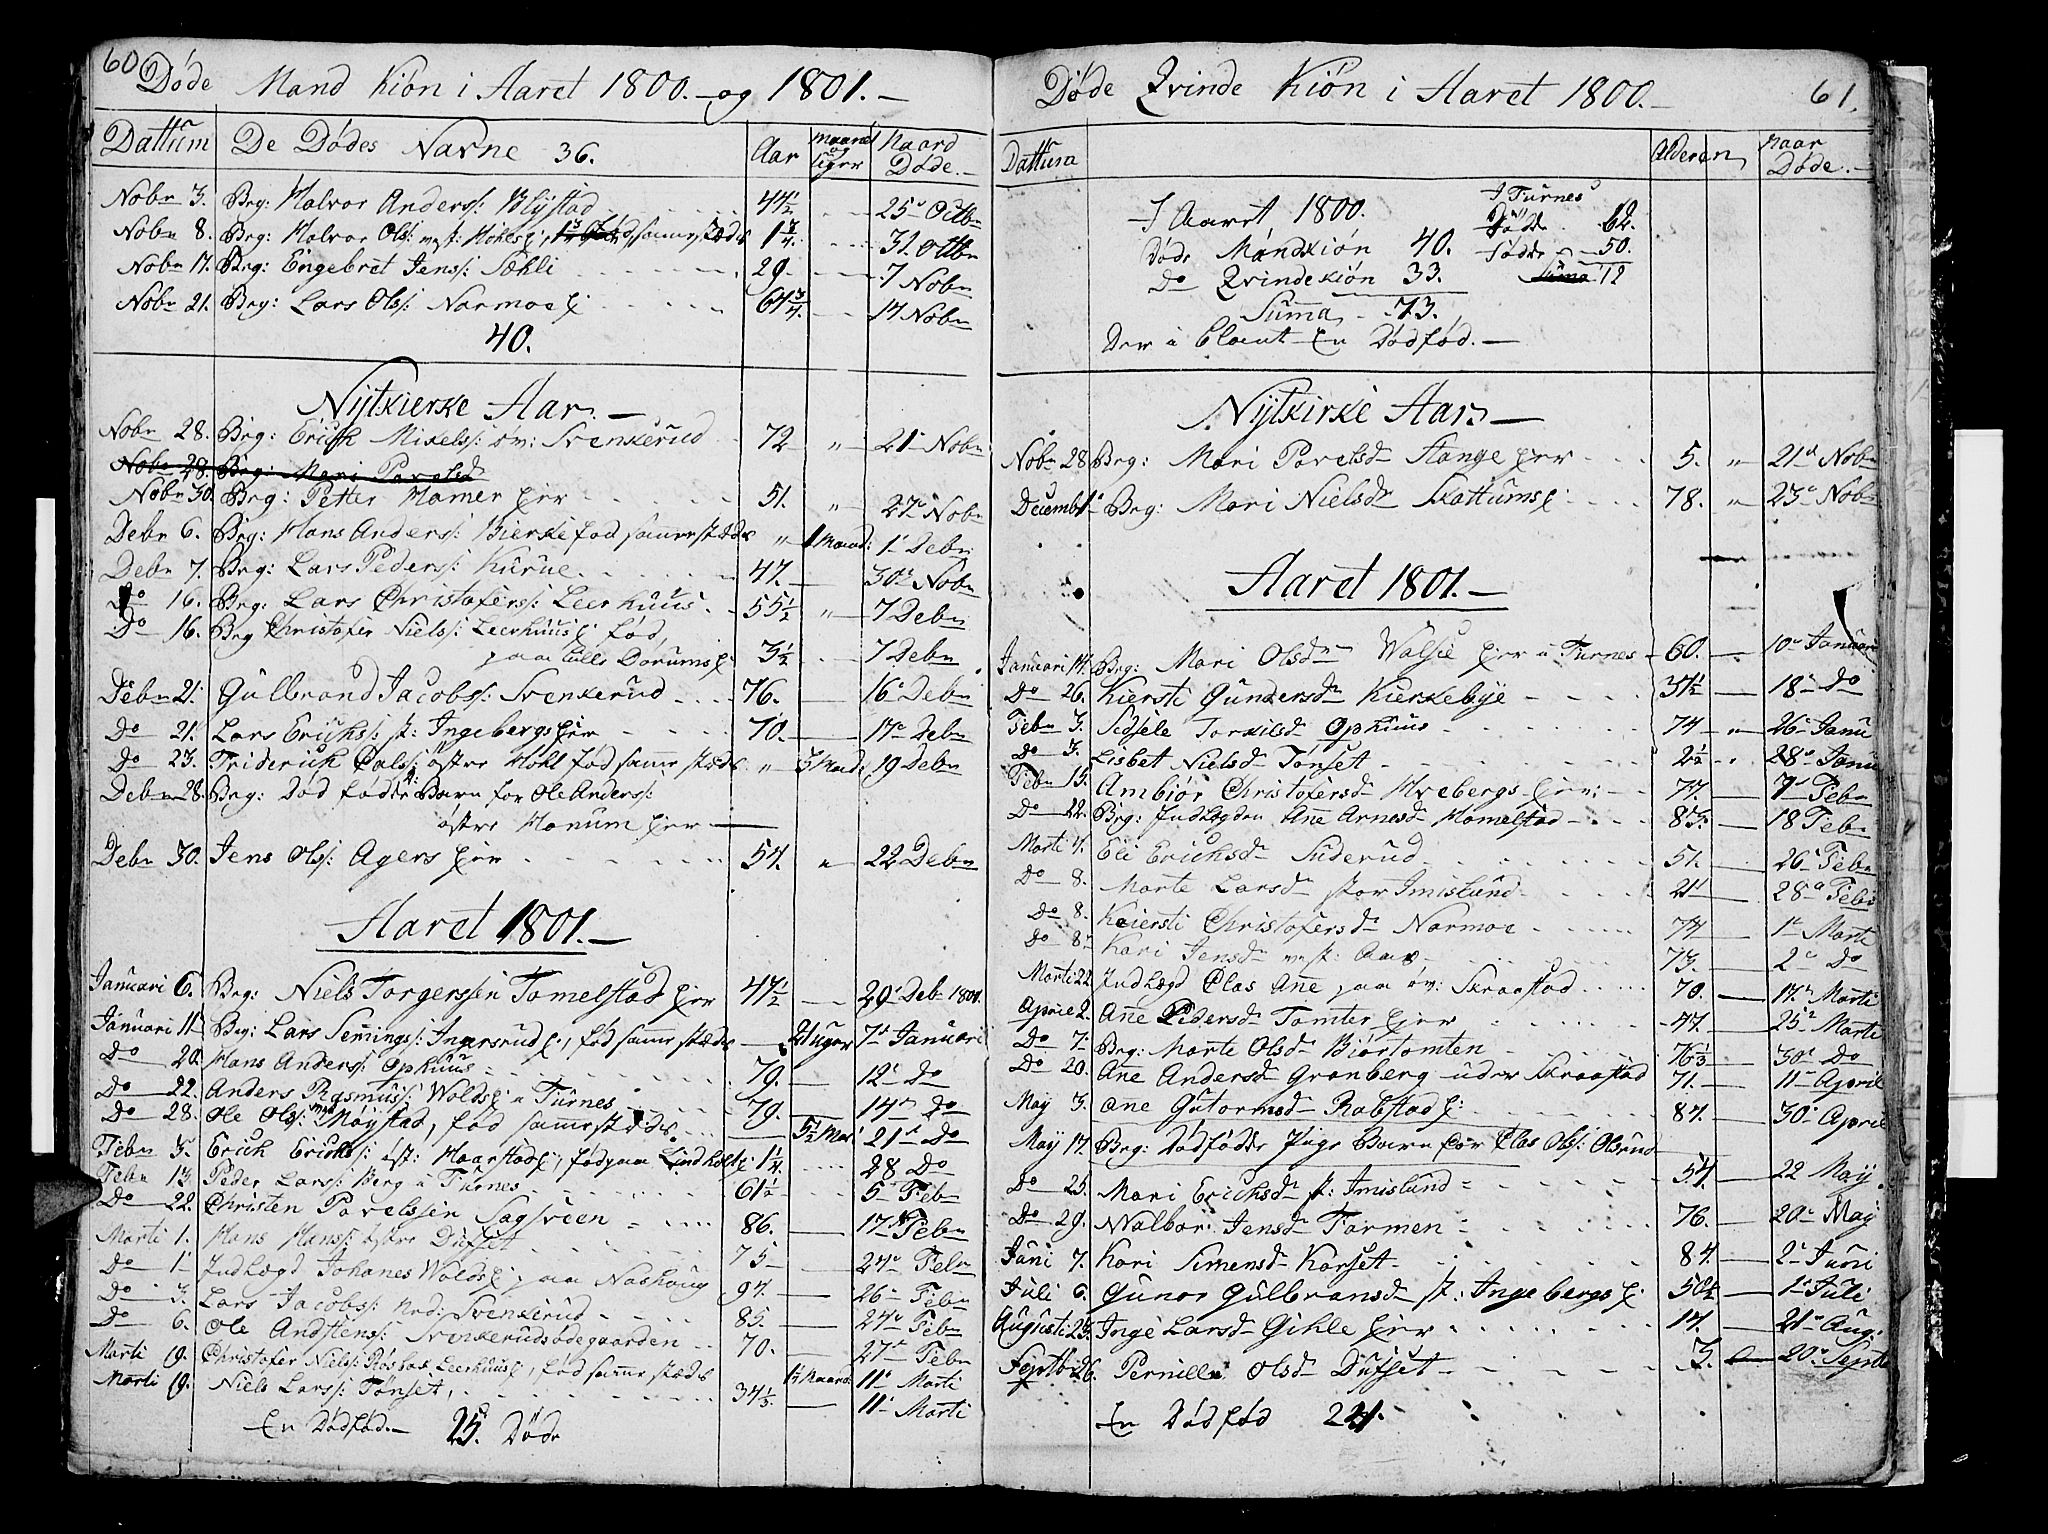 60 Døde Mand Kiön i Aaret 1800. og 1801. —
Dattum De Dødes Navne 36. Aar Maaned og Uger Naar Døde. —
Nobr 3. Brg: Halvor Anders: Blÿstad 44½ 25 Octbr
Nobr 8. Brg: Halvor Ols: vest: Hohls 1¾ 31. Octbr
Nobr 17. Brg: Engebret Jens: Sæhli 29. 7 Nobr
Nobr 21. Brg: Lars Ols: Narmoe 64¾ 14 Nobr
40.
Nÿtkierke Aar. —
Nobr 28. Brg: Erich Mikels: öv: Svenkerud 72 " 21 Nobr
Nobr 28. Brg: Mari Povelsd
Nobr 30. Brg: Petter Hamer eier 51. " 27 Nobr
Debr 6. Brg: Hans Anders: Bierke fød samestædes " 1 Maand: 1 Debr
Debr 7. Brg: Lars Peders: Kurue 47. 30 Nobr
Do 16. Brg: Lars Christofers: Leerhuus 55½ " 7 Debr
Do 16. Brg Christofer Niels: Leerhuus fød,
paa Lille Dorums 3½ 7 Debr
Debr 21. Gulbrand Jacobs: Svenkerud 76. 16 Debr
Do 21. Lars Erichs: st: Ingebergs eier 70. 17 Debr
Do 23. Friderich Pals: östre Hohl fød samestæds " 3 Maad: 19 Debr
Debr 28. Brg: Död födde Barn for Ole Anders:
östre Honum eier
Debr 30. Jens Ols: Agers eier 54. " 22 Debr
Aaret 1801. —
Januari 6. Brg: Niels Torgerssen Tomelstad eier 47½ 29 Debr 1801.
Januari 11 Brg: Lars Semings: Ingersrud, fød samestædes 2 Uger 7 Januari
Do 20. Hans Anders: Ophuus 79. 12 Do
Do 22. Anders Rasmus: Wolds a Furnes 79. 14 Do
Do 28. Ole Ols: Møystad, fød samestædes. 5½ Mar 21 Do
Febr 5. Erich Erichs: öst: Haarstad, fød paa Lindholt 1¼ 28 Do
Febr 13. Peder Lars: Berg a Furnes 61½ 5 Febr
Do 22. Christen Povelssen Sagsveen 86. 17 Febr
Marti 1. Hans Hans: östre Dufset 75 24 Febr
Do 1 Indlægd Johanes Wolds paa Nashoug 94. 26 Febr
Do 3. Lars Jacobs: Nrd: Svenkerud 85. 24 Febr
Do 6. Ole Andstens: Svenkerudsödegaarden 70. 27 Febr
Marti 19. Christofer Niels: Röskas Leerhuus, fød samestædes 11 Marti
Marti 19. Niels Lars: Tönset, 34⅓ 11 Marti
En Dødfød. — 25. Döde
Døde Qvinde Kiön i Aaret 1800. — 61.
Dattum Alderen Naar Døde. —
I Aaret 1800. I Furnes
Døde 62.
Døde Mandkiön 40. Fødde 50.
Do Qvindekiön 33. Suma 12
Suma 73.
Der a blant En Dødfød. —
Nÿtkirke Aar. —
Nobr 28 Brg: Mari Povelsdr Stange eier 5. " 21 Nobr
Decembr 1 Brg: Mari Nielsdr Skattums 78. " 23 Nobr
Aaret 1801. —
Januari 14. Brg: Mari Olsdr Wolse eier a Furnes 60. 10 Januari
Do 26. Kiersti Gundersdr Kierkebye 37½ 18 Do
Febr 3. Sidsele Torkilsd Ophuus 74 " 26 Janu
Do 3. Lisbet Nielsd Tønset 2½ 28 Janu
Febr 15. Ambiör Christofersd Hvebergs eier: 77. 7 Febr
Do 22. Brg: Indlægden Ane Arnesd Homelstad 85. 18 Febr
Marti 4. Eli Erichsdr Suderud 51. 26 Febr
Do 8. Marte Larsdr stor Imislund 21 28 Febr
Do 8. Kiersti Christofersdr Narmoe 74 1 Marti
Do 8 Kari Jensdr vest: Aas 73. 2 Do
Marti 22 Indlægd Clas Ane paa öv: Skraastad 70. 17 Marti
Aprile 2. Ane Pedersdr Tomter eier 47. 25 Marti
Do 7. Brg: Marte Olsdr Biörtomten 76⅓ 30 Do
Do 20. Ane Andersdr Granberg under Skraastad 71. 11 April
Maÿ 3. Ane Gutormsdr Robstad 84. 30 April
Maÿ 17. Brg: Dødfødde Pige Barn for Clas Ols: Olsrud
Do 25. Mari Erichsdr st: Imislund 54. 22 Maÿ
Do 29. Walbor Jensdr Farmen 76. 20 Maÿ
Juni 7. Kari Simensdr Korset 84. 2 Juni
Juli 6. Gunor Gulbransdr st: Ingebergs 50½ 1 Juli
Augusti 25. Inge Larsdr Gihle eier 17. 21 Aug:
Septbr 26. Pernille Olsdr Dufset 3. 20 Septb
En Dødfød 21.